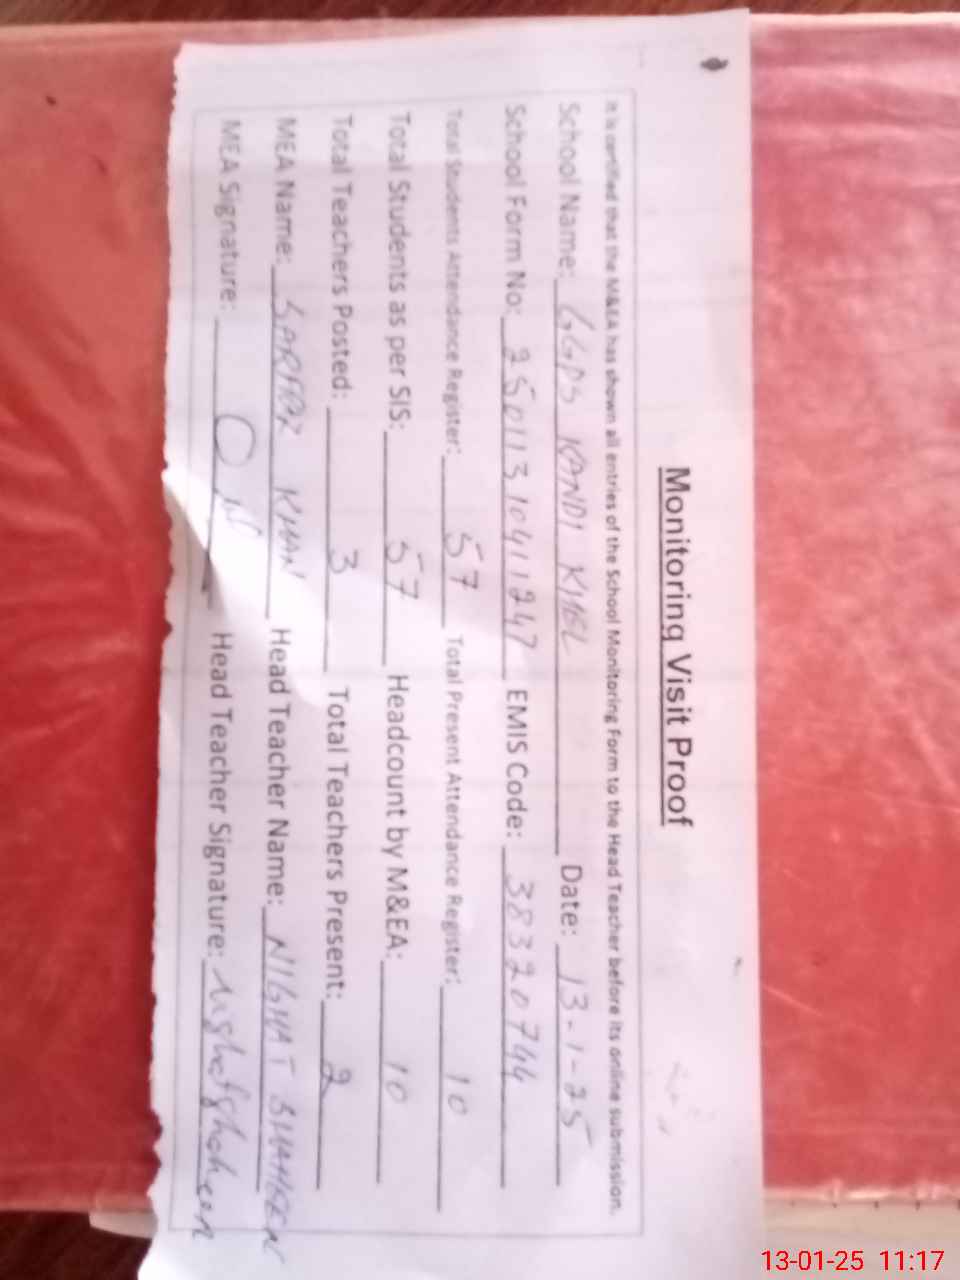 Monitoring Visit Proof
It is certified that the M&EA has shown all entries of the School Monitoring Form to the Head Teacher before its online submission.
School Name: GGPS KANDI KHEL Date: 13-1-25
School Form No: 25011310411247 EMIS Code: 38320744
Total Students Attendance Register: 57 Total Present Attendance Register: 10
Total Students as per SIS: 57 Headcount by M&EA: 10
Total Teachers Posted: 3 Total Teachers Present: 2
MEA Name: SARFRAZ KHAN Head Teacher Name: NIGHAT SHAHEEN
MEA Signature: Head Teacher Signature: Nighat Shaheen
13-01-25 11:17